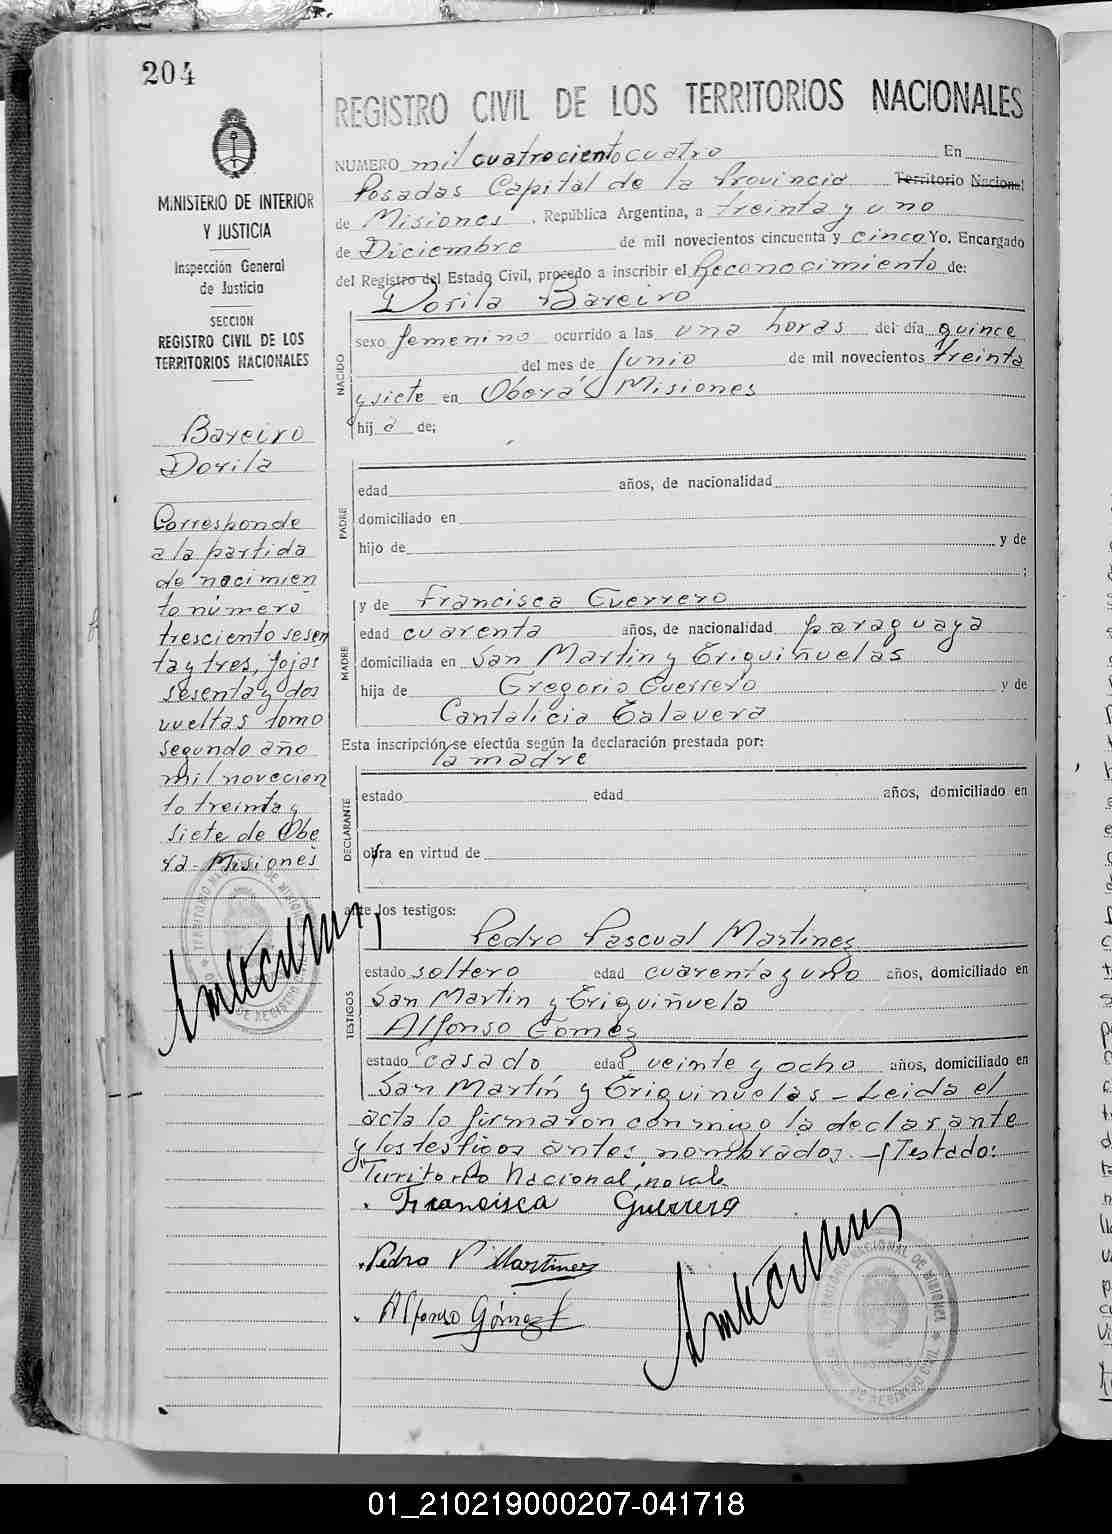 204
MINISTERIO DE INTERIOR
Y JUSTICIA
Inspección General
de Justicia
SECCION
REGISTRO CIVIL DE LOS
TERRITORIOS NACIONALES
Bareiro
Dorila
Corresponde
a la partida
de nacimien
to número
tresciento sesen
ta y tres, fojas
sesenta y dos
vueltas tomo
segundo año
mil novecien
to treinta y
siete de Obe
rá - Misiones
REGISTRO CIVIL DE LOS TERRITORIOS NACIONALES
NUMERO mil cuatrociento cuatro En
Posadas Capital de la Provincia Territorio Nacional
de Misiones, República Argentina, a treinta y uno
de Diciembre de mil novecientos cincuenta y cinco Yo. Encargado
del Registro del Estado Civil, procedo a inscribir el Reconocimiento de:
Dorila Bareiro
NACIDO
sexo femenino ocurrido a las una horas del día quince
del mes de Junio de mil novecientos treinta
y siete en Oberá Misiones
hij a de;
PADRE
edad años, de nacionalidad
domiciliado en
hijo de y de
;
MADRE
y de Francisca Guerrero
edad cuarenta años, de nacionalidad paraguaya
domiciliada en San Martin y Triguiñuelas
hija de Gregorio Guerrero y de
Cantalicia Talavera
Esta inscripción se efectúa según la declaración prestada por:
la madre
DECLARANTE
estado edad años, domiciliado en
obra en virtud de
ante los testigos:
TESTIGOS
Pedro Pascual Martinez
estado soltero edad cuarenta y uno años, domiciliado en
San Martin y Triguiñuela
Alfonso Gomez
estado casado edad veinte y ocho años, domiciliado en
San Martín y Triguiñuelas - Leida el
acta lo firmaron conmigo la declarante
y los testigos antes nombrados. - Testado:
"Territorio Nacional, no vale
Francisca Guerrero
Pedro P Martinez
Alfonso Gómez
01_210219000207-041718